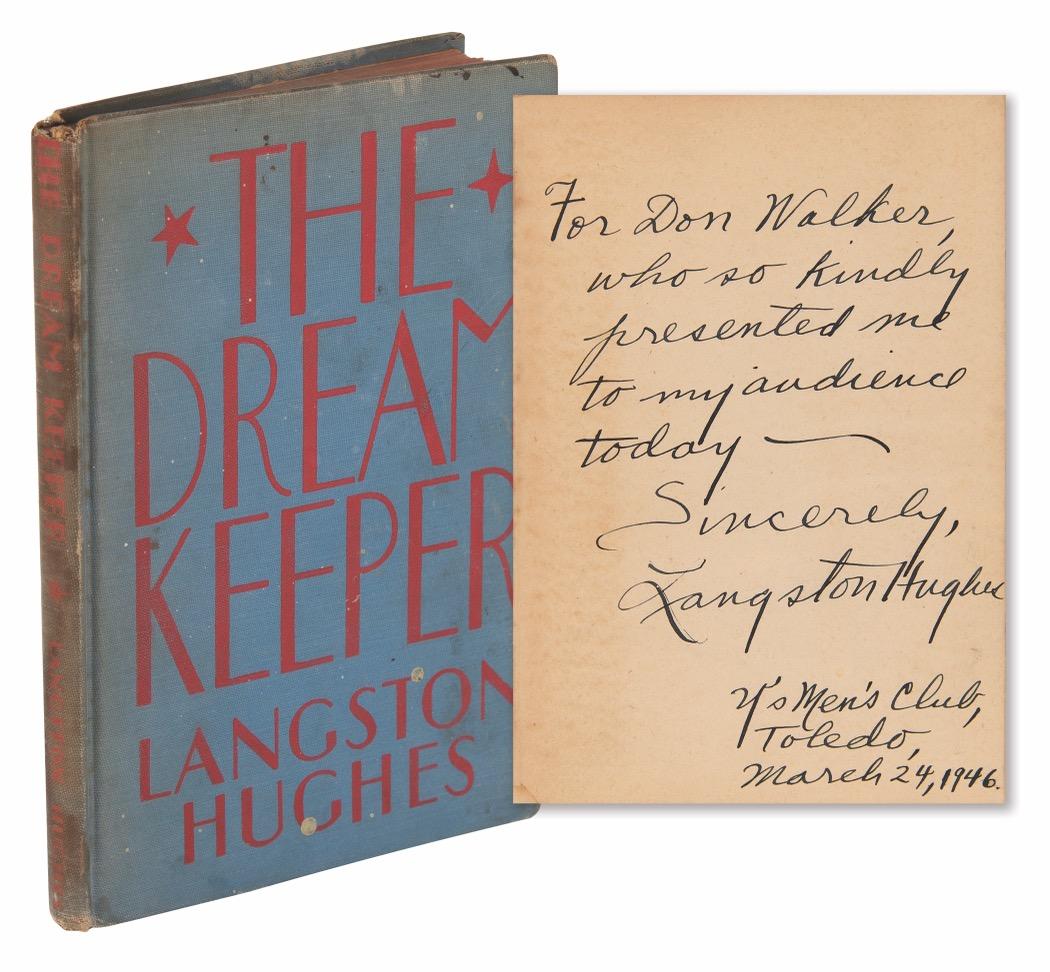 THE DREAM KEEPER LANGSTON HUGHES
THE
DREAM
KEEPER
LANGSTON
HUGHES
For Don Walker,
who so kindly
presented me
to my audience
today —
Sincerely,
Langston Hughes
Y's Men's Club,
Toledo,
March 24, 1946.